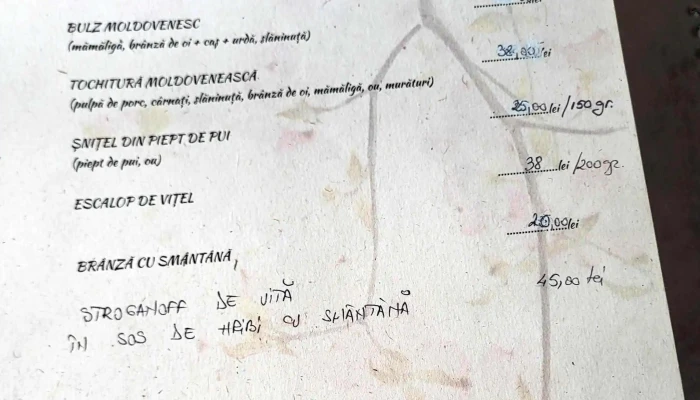 BULZ MOLDOVENESC
(mămăligă, brânză de oi + caș + urdă, slăninuță)
38,00 lei
TOCHITURĂ MOLDOVENEASCĂ
(pulpă de porc, cârnați, slăninuță, brânză de oi, mămăligă, ou, murături)
25,00 lei/150gr.
ȘNIȚEL DIN PIEPT DE PUI
(piept de pui, ou)
38 lei/200gr.
ESCALOP DE VIȚEL
20,00 lei
BRÂNZĂ CU SMÂNTÂNĂ,
45,00 lei
STROGANOFF DE VITĂ
ÎN SOS DE HRIBI CU SMÂNTÂNĂ